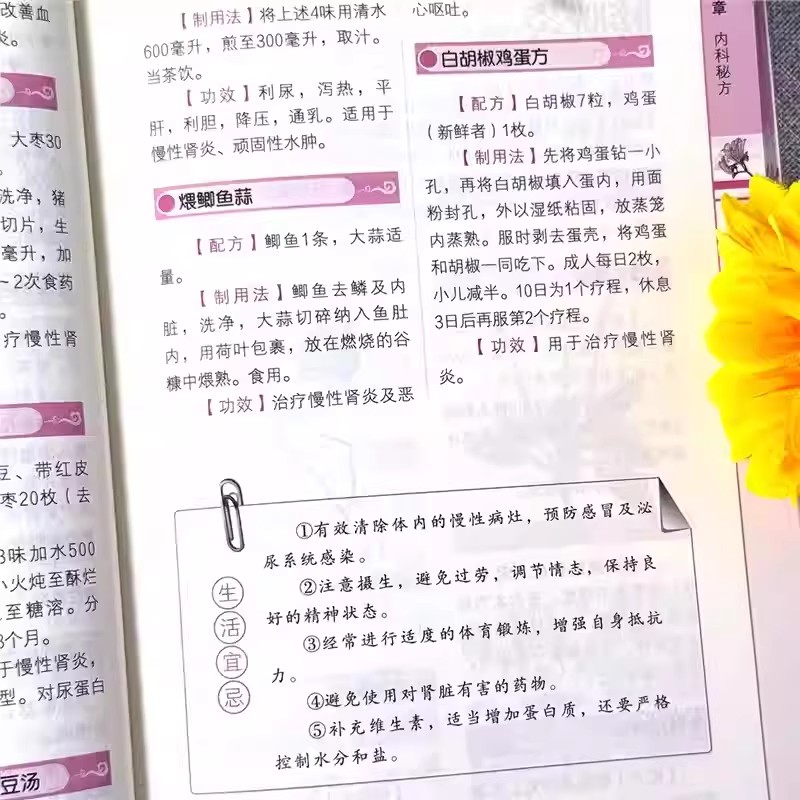 改善血
炎。
大枣30
洗净，猪
切片，生
毫升，加
～2次食药
。
疗慢性肾
豆、带红皮
枣20枚（去
3味加水500
小火炖至酥烂
至糖溶。分
3个月。
于慢性肾炎，
型。对尿蛋白
豆汤
【制用法】将上述4味用清水
600毫升，煎至300毫升，取汁。
当茶饮。
【功效】利尿，泻热，平
肝，利胆，降压，通乳。适用于
慢性肾炎、顽固性水肿。
煨鲫鱼蒜
【配方】鲫鱼1条，大蒜适
量。
【制用法】鲫鱼去鳞及内
脏，洗净，大蒜切碎纳入鱼肚
内，用荷叶包裹，放在燃烧的谷
糠中煨熟。食用。
【功效】治疗慢性肾炎及恶
心呕吐。
白胡椒鸡蛋方
【配方】白胡椒7粒，鸡蛋
（新鲜者）1枚。
【制用法】先将鸡蛋钻一小
孔，再将白胡椒填入蛋内，用面
粉封孔，外以湿纸粘固，放蒸笼
内蒸熟。服时剥去蛋壳，将鸡蛋
和胡椒一同吃下。成人每日2枚，
小儿减半。10日为1个疗程，休息
3日后再服第2个疗程。
【功效】用于治疗慢性肾
炎。
生活宜忌
①有效清除体内的慢性病灶，预防感冒及泌
尿系统感染。
②注意摄生，避免过劳，调节情志，保持良
好的精神状态。
③经常进行适度的体育锻炼，增强自身抵抗
力。
④避免使用对肾脏有害的药物。
⑤补充维生素，适当增加蛋白质，还要严格
控制水分和盐。
章 内科秘方